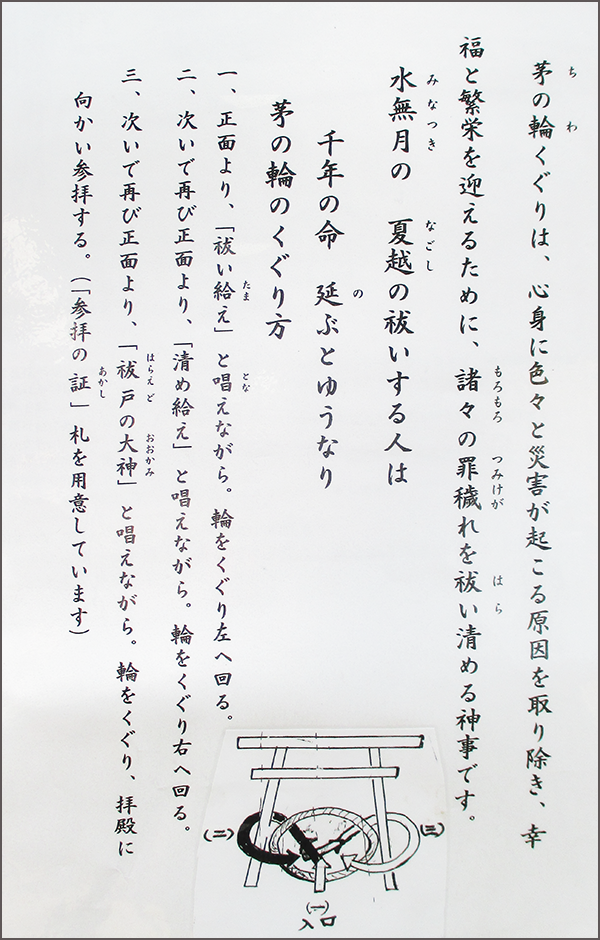 茅の輪くぐりは、心身に色々と災害が起こる原因を取り除き、幸
ち わ
福と繁栄を迎えるために、諸々の罪穢れを祓い清める神事です。
もろもろ つみけが はら
水無月の 夏越の祓いする人は
みなつき なごし
千年の命 延ぶとゆうなり
の
茅の輪のくぐり方
一、正面より、「祓い給え」と唱えながら。輪をくぐり左へ回る。
たま とな
二、次いで再び正面より、「清め給え」と唱えながら。輪をくぐり右へ回る。
三、次いで再び正面より、「祓戸の大神」と唱えながら。輪をくぐり、拝殿に
はらえど おおかみ
向かい参拝する。(「参拝の証」札を用意しています)
あかし
(二)
(三)
(一)
入口